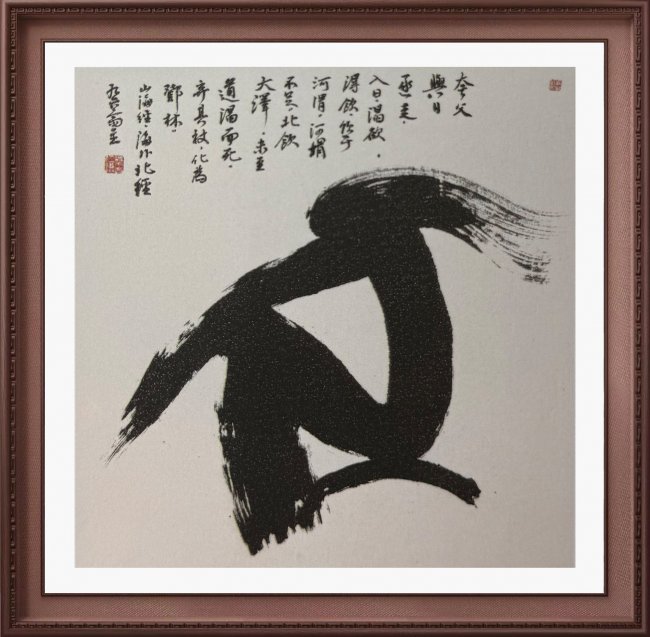 夸父
與日
逐走，
入日，渴欲，
得飲，飲于
河渭，河渭
不足，北飲
大澤，未至
道渴而死，
弃其杖，化為
鄧林。
山海經，海外北經